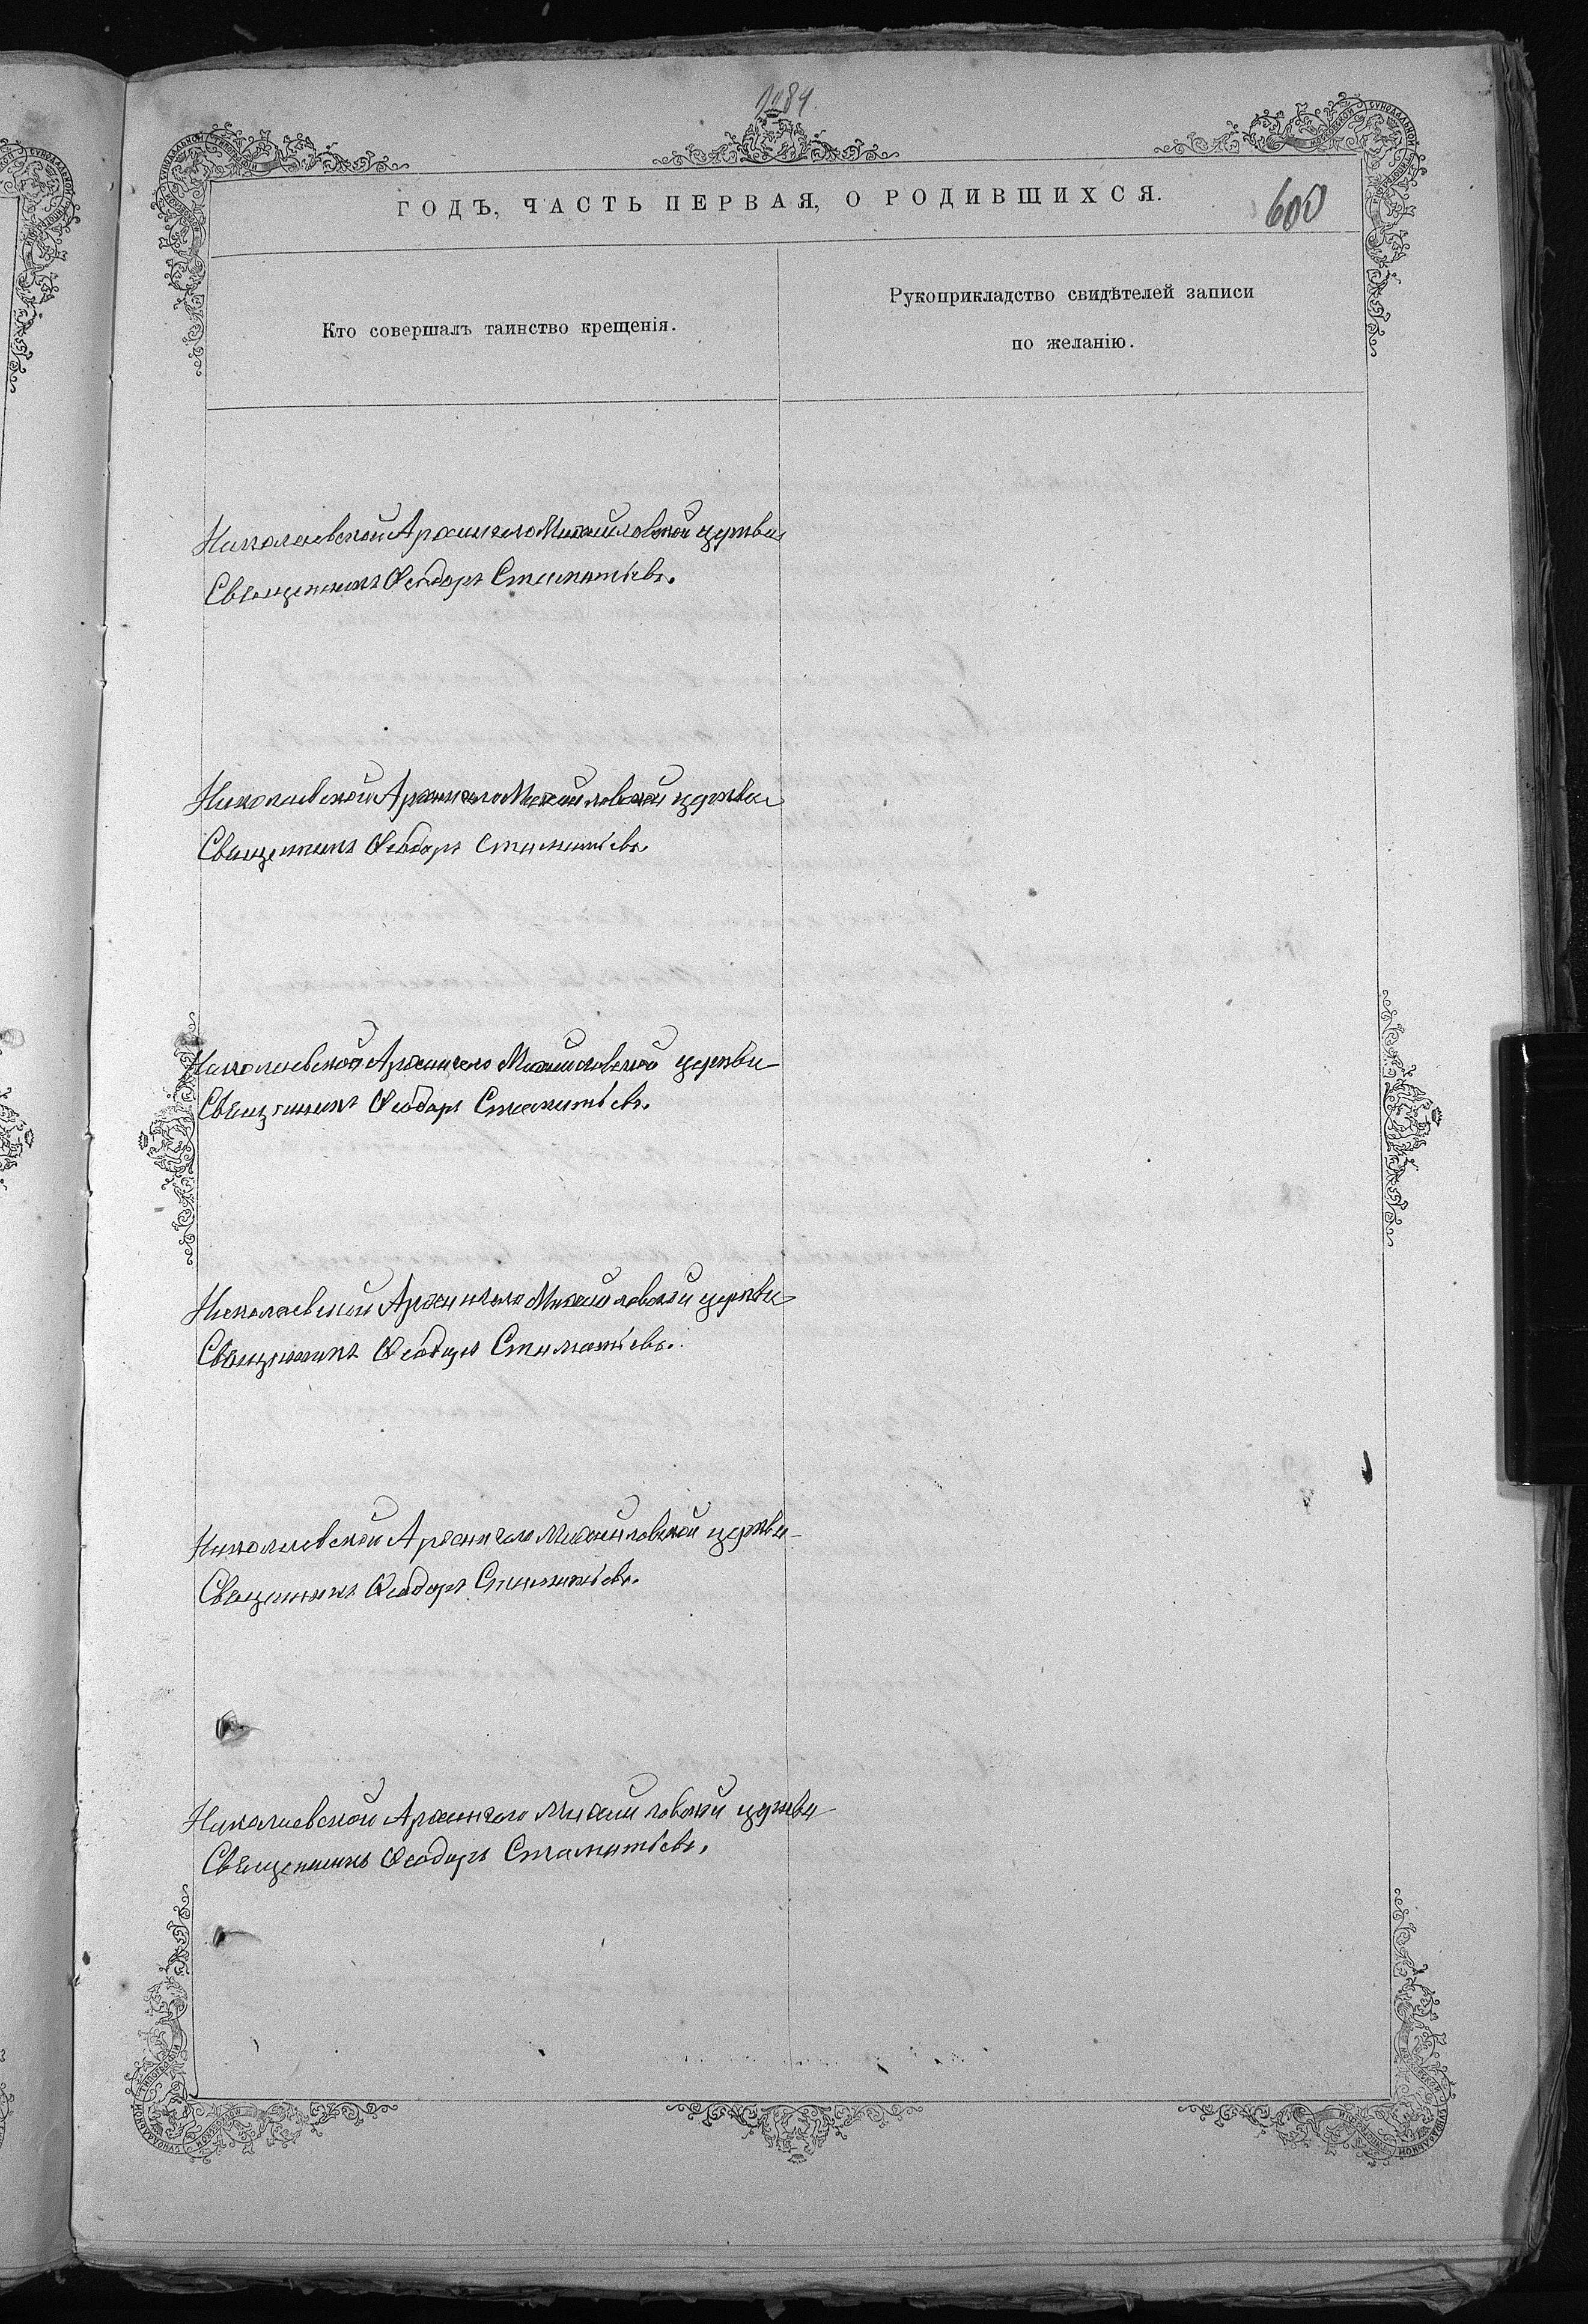 ГОДЪ, ЧАСТЬ ПЕРВАЯ, О РОДИВШИХСЯ.
600
Кто совершалъ таинство крещенія.
Рукоприкладство свидѣтелей записи
по желанію.
Николаевской Архангело Михайловской церкви
Священникъ Ѳеодоръ Стаматьевъ.
Николаевской Архангело Михайловской церкви
Священникъ Ѳеодоръ Стаматьевъ.
Николаевской Архангело Михайловской церкви
Священникъ Ѳеодоръ Стаматьевъ.
Николаевской Архангело Михайловской церкви
Священникъ Ѳеодоръ Стаматьевъ.
Николаевской Архангело Михайловской церкви
Священникъ Ѳеодоръ Стаматьевъ.
Николаевской Архангело Михайловской церкви
Священникъ Ѳеодоръ Стаматьевъ.